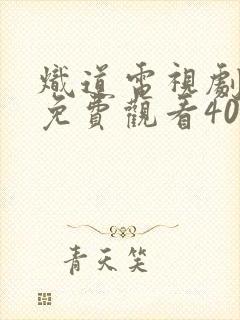 熾道電視劇
免費觀看40
青天笑